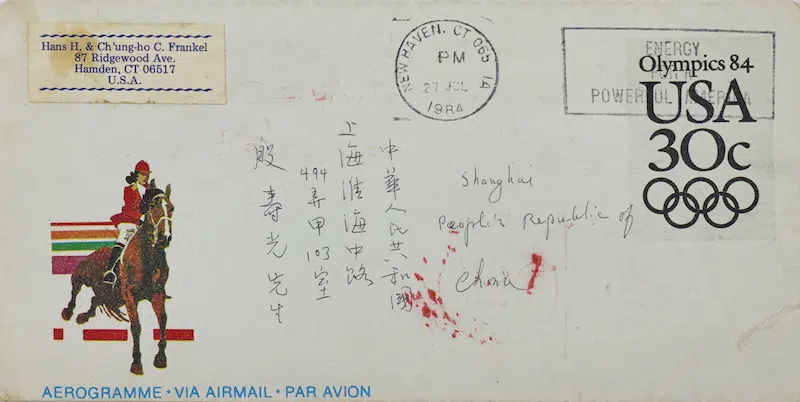 Hans H. & Ch'ung-ho C. Frankel
87 Ridgewood Ave.
Hamden, CT 06517
U.S.A.
NEW HAVEN, CT 065 1A
PM
27 JUL
1984
ENERGY
FOR A
POWERFUL AMERICA
Olympics 84
USA
30c
中華人民共和國
上海淮海中路
494弄甲103室
殷壽光先生
Shanghai
People's Republic of
China
AEROGRAMME • VIA AIRMAIL • PAR AVION